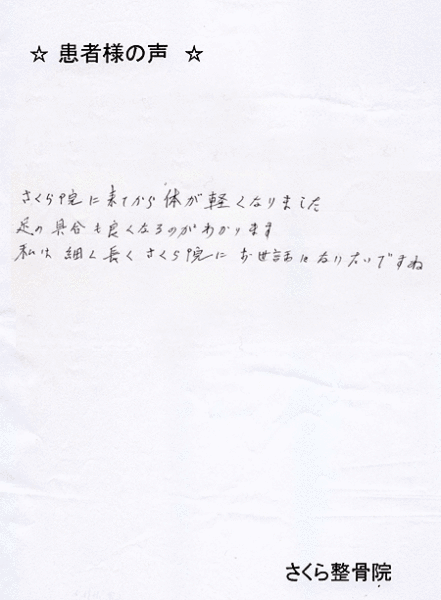 ☆ 患者様の声 ☆
さくら院に来てから体が軽くなりました
足の具合も良くなるのがわかります
私は細く長くさくら院にお世話になりたいですね
さくら整骨院